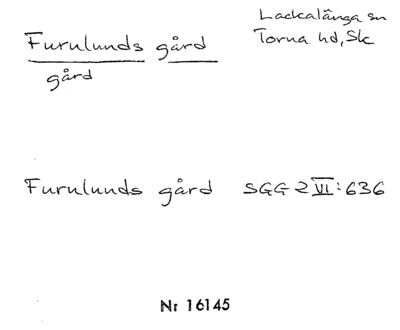 Furulunds gård
gård
Lackalänga sn
Torna hd, Sk
Furulunds gård SGG 2 VI:636
Nr 16145